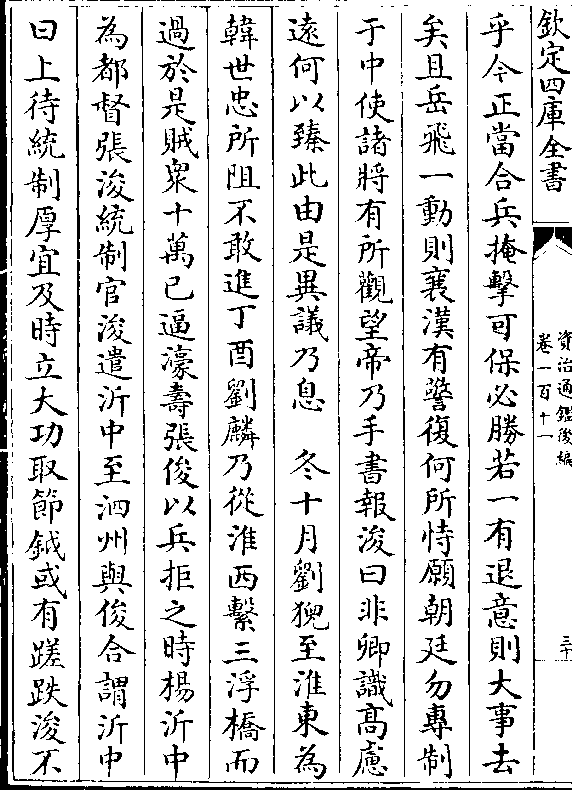 欽定四庫全書
資治通鑑後編
卷一百十一
三十
乎今正當合兵掩擊可保必勝若一有退意則大事去
矣且岳飛一動則襄漢有警復何所恃願朝廷勿專制
于中使諸將有所觀望帝乃手書報浚曰非卿識高慮
遠何以臻此由是異議乃息　冬十月劉猊至淮東為
韓世忠所阻不敢進丁酉劉麟乃從淮西繫三浮橋而
過於是賊衆十萬已逼濠壽張俊以兵拒之時楊沂中
為都督張浚統制官浚遣沂中至泗州與俊合謂沂中
曰上待統制厚宜及時立大功取節鉞或有蹉跌浚不